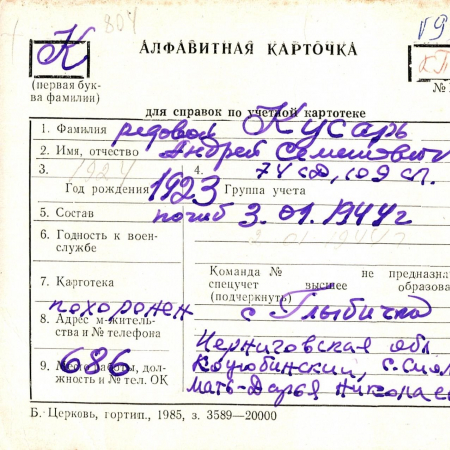 К
804
АЛФАВИТНАЯ КАРТОЧКА
(первая бук-
ва фамилии)
№
для справок по учетной картотеке
1. Фамилия рядовой Кусарь
2. Имя, отчество Андрей Семенович
3. 1924 4. 74 сд, 109 сп.
Год рождения 1923 Группа учета
5. Состав погиб 3.01.1944г
6. Годность к воен-
службе
Команда № не предназна
7. Картотека спецучет высшее образова
(подчеркнуть)
похоронен с Глыбичка
8. Адрес м-житель-
ства и № телефона
Черниговская обл
9. Место работы, дол-
жность и № тел. ОК
686
мать-Дарья Николае
Б. Церковь, гортип., 1985, з. 3589—20000